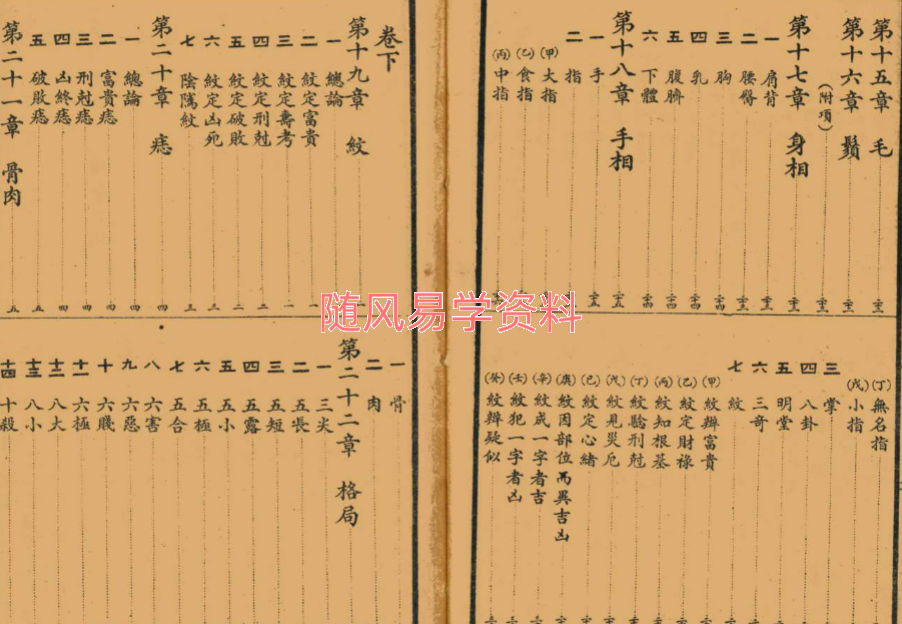 第十五章 毛
第十六章 鬚
（附項）
第十七章 身相
一 肩背
二 腰臀
三 胸
四 乳
五 腹臍
六 下體
第十八章 手相
一 手
二 指
（甲）大指
（乙）食指
（丙）中指
（丁）無名指
（戊）小指
三 掌
四 八卦
五 明堂
六 三奇
七 紋
（甲）紋辨富貴
（乙）紋定財祿
（丙）紋知根基
（丁）紋驗刑尅
（戊）紋見災厄
（己）紋定心緒
（庚）紋因部位而異吉凶
（辛）紋成一字者吉
（壬）紋犯一字者凶
（癸）紋辨疑似
卷下
第十九章 紋
一 總論
二 紋定富貴
三 紋定壽考
四 紋定刑尅
五 紋定破敗
六 紋定凶死
七 陰隲紋
第二十章 痣
一 總論
二 富貴痣
三 刑尅痣
四 凶終痣
五 破敗痣
第二十一章 骨肉
一 骨
二 肉
第二十二章 格局
一 三尖
二 五長
三 五短
四 五露
五 五小
六 五極
七 五合
八 六害
九 六惡
十 六賤
十一 六極
十二 八大
十三 八小
十四 十殺
随风易学资料